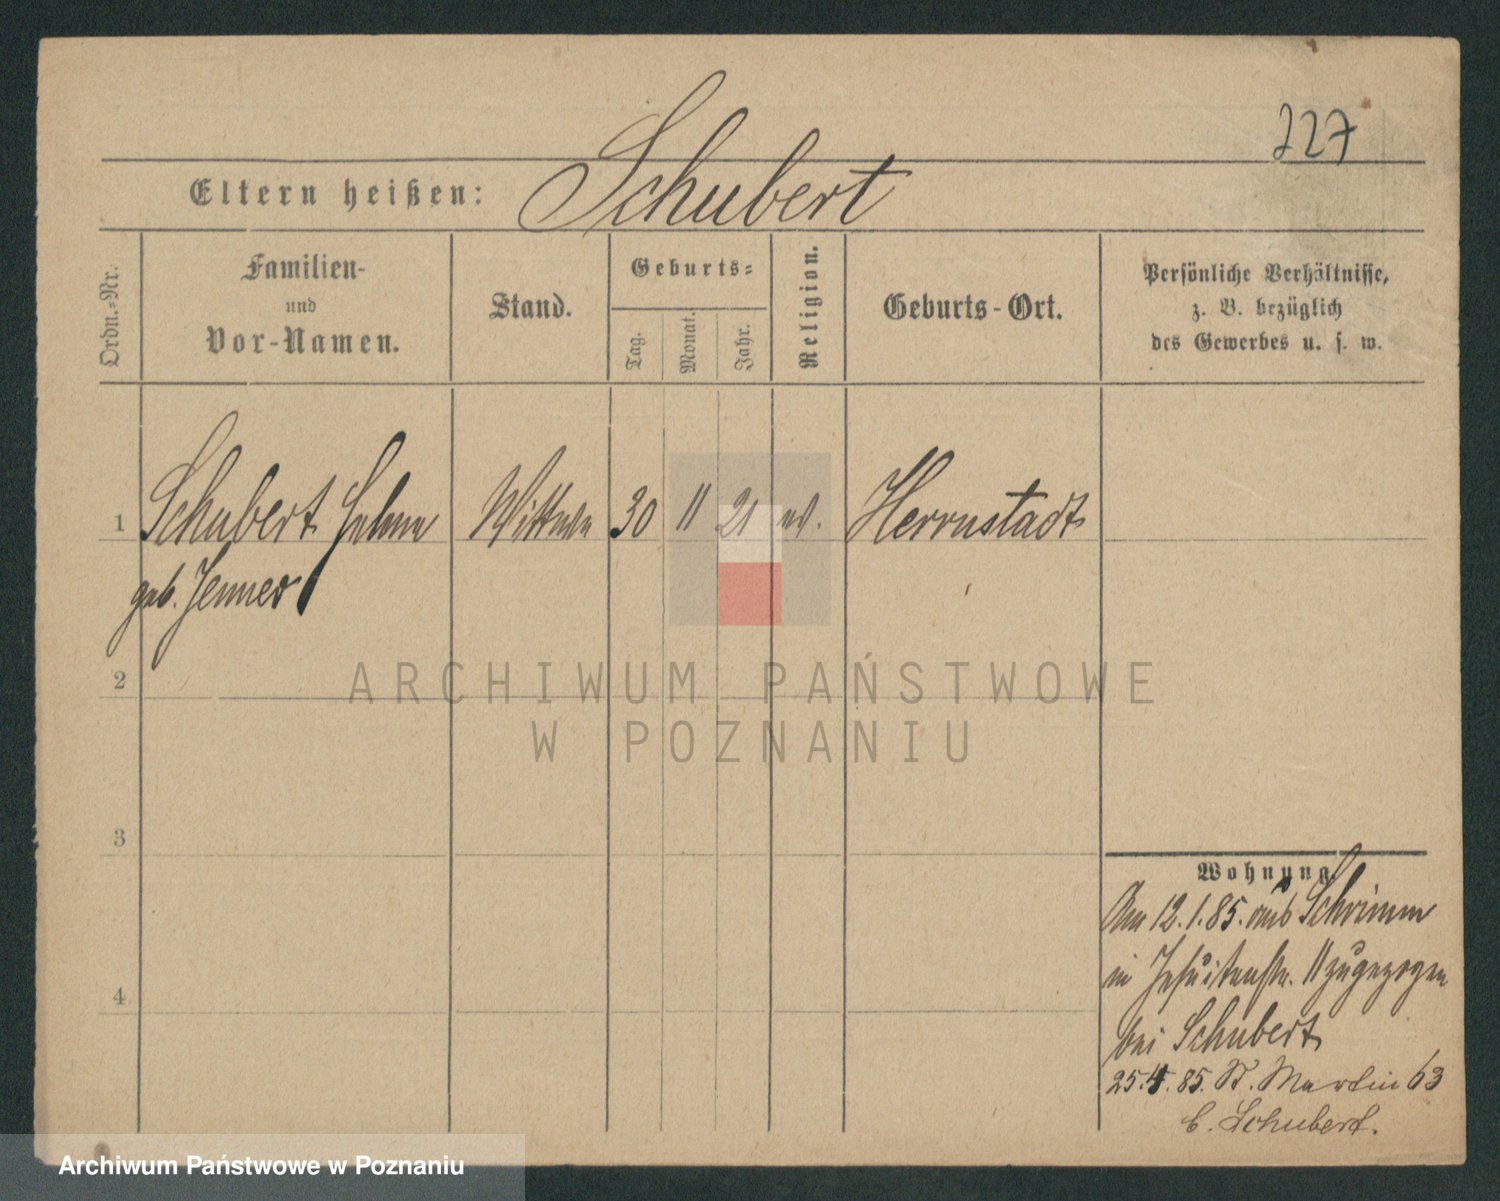 227
Schubert
Eltern heißen:
Ordn.-Nr.
Familien-
und
Vor-Namen.
Stand.
Geburts-
Tag.
Monat.
Jahr.
Religion.
Geburts-Ort.
Persönliche Verhältnisse,
z. B. bezüglich
des Gewerbes u. s. w.
1 Schubert Wittwe 30 11 21 ev. Herrnstadt
geb. Jenner
2
ARCHIWUM PAŃSTWOWE
W POZNANIU
3
4
Wohnung.
Am 12.1.85. aus Schrimm
in Jesuitenstr. 11 zugezogen
bei Schubert
25.4.85. St. Martin 63
b. Schubert.
Archiwum Państwowe w Poznaniu